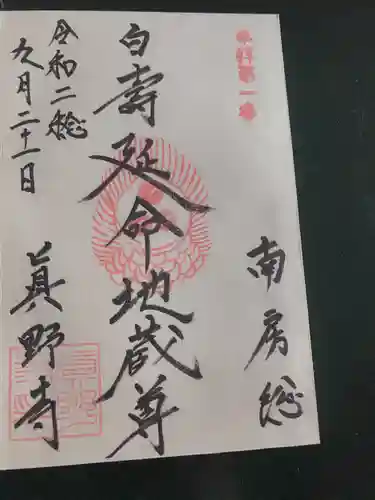 南房総
白寿延命地蔵尊
令和二稔
九月二十一日
眞野寺